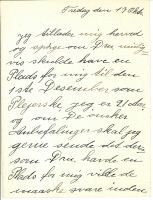 Fredag den 19 Okt.
jeg tillader mig herved
og spørge om Dru mulig
vis skulde have en
Plads for mig til den
1ste Desember som
Plejerske jeg er 21 Aar
og om De ønsker
Anbefalinger skal jeg
gerne sende det der
som Dru havde en
Plads for mig vilde de
maaske svare inden